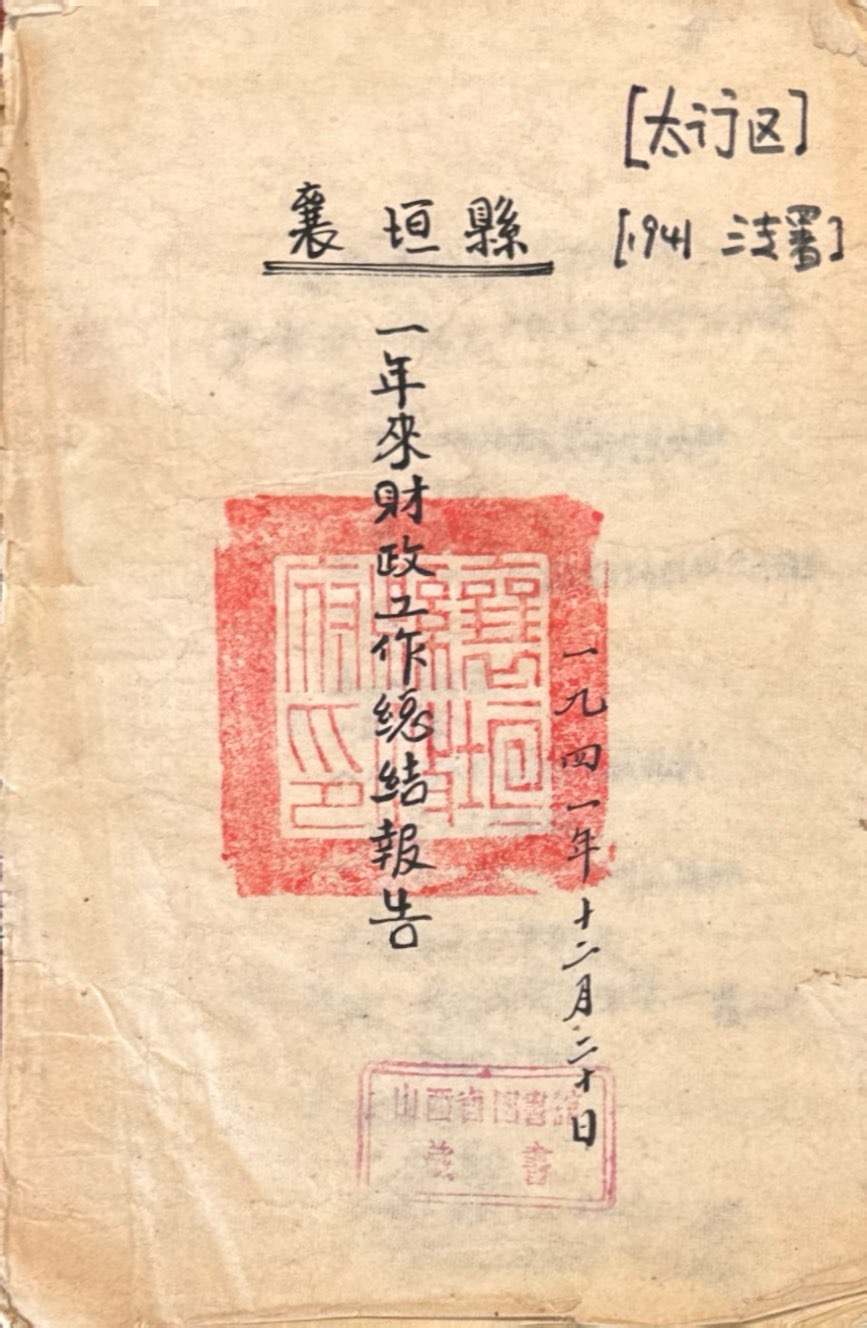 [太行区]
[1941 三专署]
襄垣縣
一年來財政工作總結報告
一九四一年十二月二十日
襄垣
縣政
府印
山西省圖書館
藏書